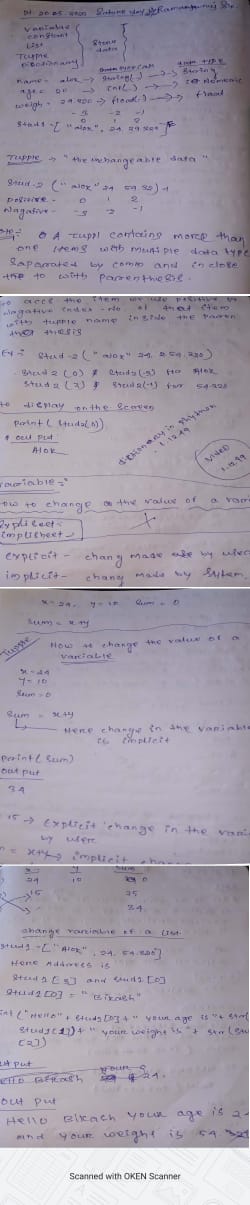 Variable
constant
List
Tupple
Dictionary
Store
data
name - alok → String(.) → String
age = 20 → int(.) →
weigh - 54.320 → float(.) → float
-3 -2 -1
0 1 2
Stud1 = ["alok", 24, 54.320]
Tupple → "the unchangeable data"
Stud-2 ("alok" 24 54.32)
positive - 0 1 2
Nagative - -3 -2 -1
A Tupl contains more than
one items with multiple data type
Saparated by comm and in close
to with parrenthesis.
to access the item we use positive or
Nagative index - No of that item
with tupple name inside the Paren
thesis
Ex:- Stud-2 ("alok" 24, 54.320)
Stud2 (0) Stud2(-3) for Alok
Stud2 (2) Stud2(-1) for 54.320
to display on the Screen
print(Stud2(0))
out put
Alok
dictionary in phython
1.12.49
video
1.12.49
variable:-
How to change the value of a vari
Explicit
Implicit
explicit - chang made by user
implicit - chang made by System.
x = 24, y = 10 Sum = 0
Sum = x+y
Tupple
How to change the value of a
variable
x = 24
y = 10
Sum = 0
Sum = x+y
Here change in the variable
is implicit
print(Sum)
out put
34
15 → Explicit change in the vari
by user
= x+y → implicit change
x y Sum
24 10 0
15 25
34
change variable of a list
Stud1 = ["Alok", 24, 54.320]
Here Address is
Stud1 [-3] and Stud1 [0]
Stud1 [0] = "Bikash"
int("Hello" + Stud1[0] + " your age is" + str(
Stud1[1]) + " your weight is" + str(Stu
[2])
out put
Hello Bikash
out put
Hello Bikash your age is 2
and your weight is 54.32
Scanned with OKEN Scanner